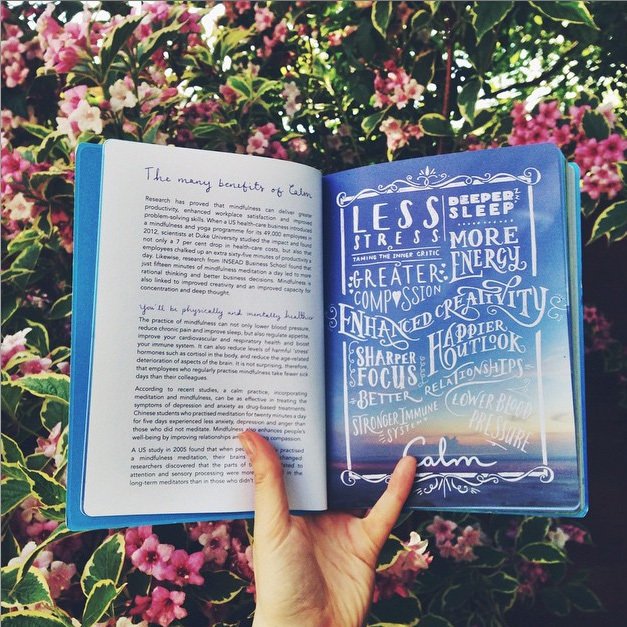 The many benefits of Calm
Research has proved that mindfulness can deliver greater
productivity, enhanced workplace satisfaction and improved
problem-solving skills. When a US health-care business introduced
a mindfulness and yoga programme for its 49,000 employees in
2012, scientists at Duke University studied the impact and found
not only a 7 per cent drop in health-care costs, but also that
employees chalked up an extra sixty-five minutes of productivity a
day. Likewise, research from INSEAD Business School found that
just fifteen minutes of mindfulness meditation a day led to more
rational thinking and better business decisions. Mindfulness is
also linked to improved creativity and an improved capacity for
concentration and deep thought.
You'll be physically and mentally healthier
The practice of mindfulness can not only lower blood pressure,
reduce chronic pain and improve sleep, but also regulate appetite,
improve your cardiovascular and respiratory health and boost
your immune system. It can also reduce levels of harmful 'stress'
hormones such as cortisol in the body, and reduce the age-related
deterioration of aspects of the brain. It is not surprising, therefore,
that employees who regularly practise mindfulness take fewer sick
days than their colleagues.
According to recent studies, a calm practice, incorporating
meditation and mindfulness, can be as effective in treating the
symptoms of depression and anxiety as drug-based treatments.
Chinese students who practised meditation for twenty minutes a day
for five days experienced less anxiety, depression and anger than
those who did not meditate. Mindfulness also enhances people's
well-being by improving relationships and compassion.
A US study in 2005 found that when people practised
a mindfulness meditation, their brains changed
researchers discovered that the parts of related to
attention and sensory processing were more in the
long-term meditators than in those who didn't
LESS
STRESS
DEEPER
SLEEP
TAMING THE INNER CRITIC
MORE
ENERGY
GREATER
COMPASSION
ENHANCED CREATIVITY
HAPPIER
OUTLOOK
SHARPER
FOCUS
BETTER RELATIONSHIPS
STRONGER IMMUNE
SYSTEM
LOWER BLOOD
PRESSURE
Calm